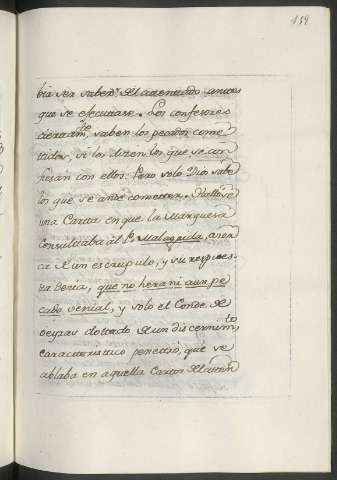 159
bia ser saber.r del attentado antes
que se efecutase. Los confesores
ciertam.te saben los pecados come
tidos, si los dizen los que se con
fiesan con ellos. Pero solo Dios sabe
los que se ande cometter. Hallose
una Cartta en que la Marquesa
Consulttaba al P.e Malagrida, acer
ca de un escrupulo, y su respues
ta decia, que no hera ni aun pe
cado venial, y solo el Conde de
oeyras dottado de un discernim.to
caracteristico penettró, que se
ablaba en aquella Cartta del atten